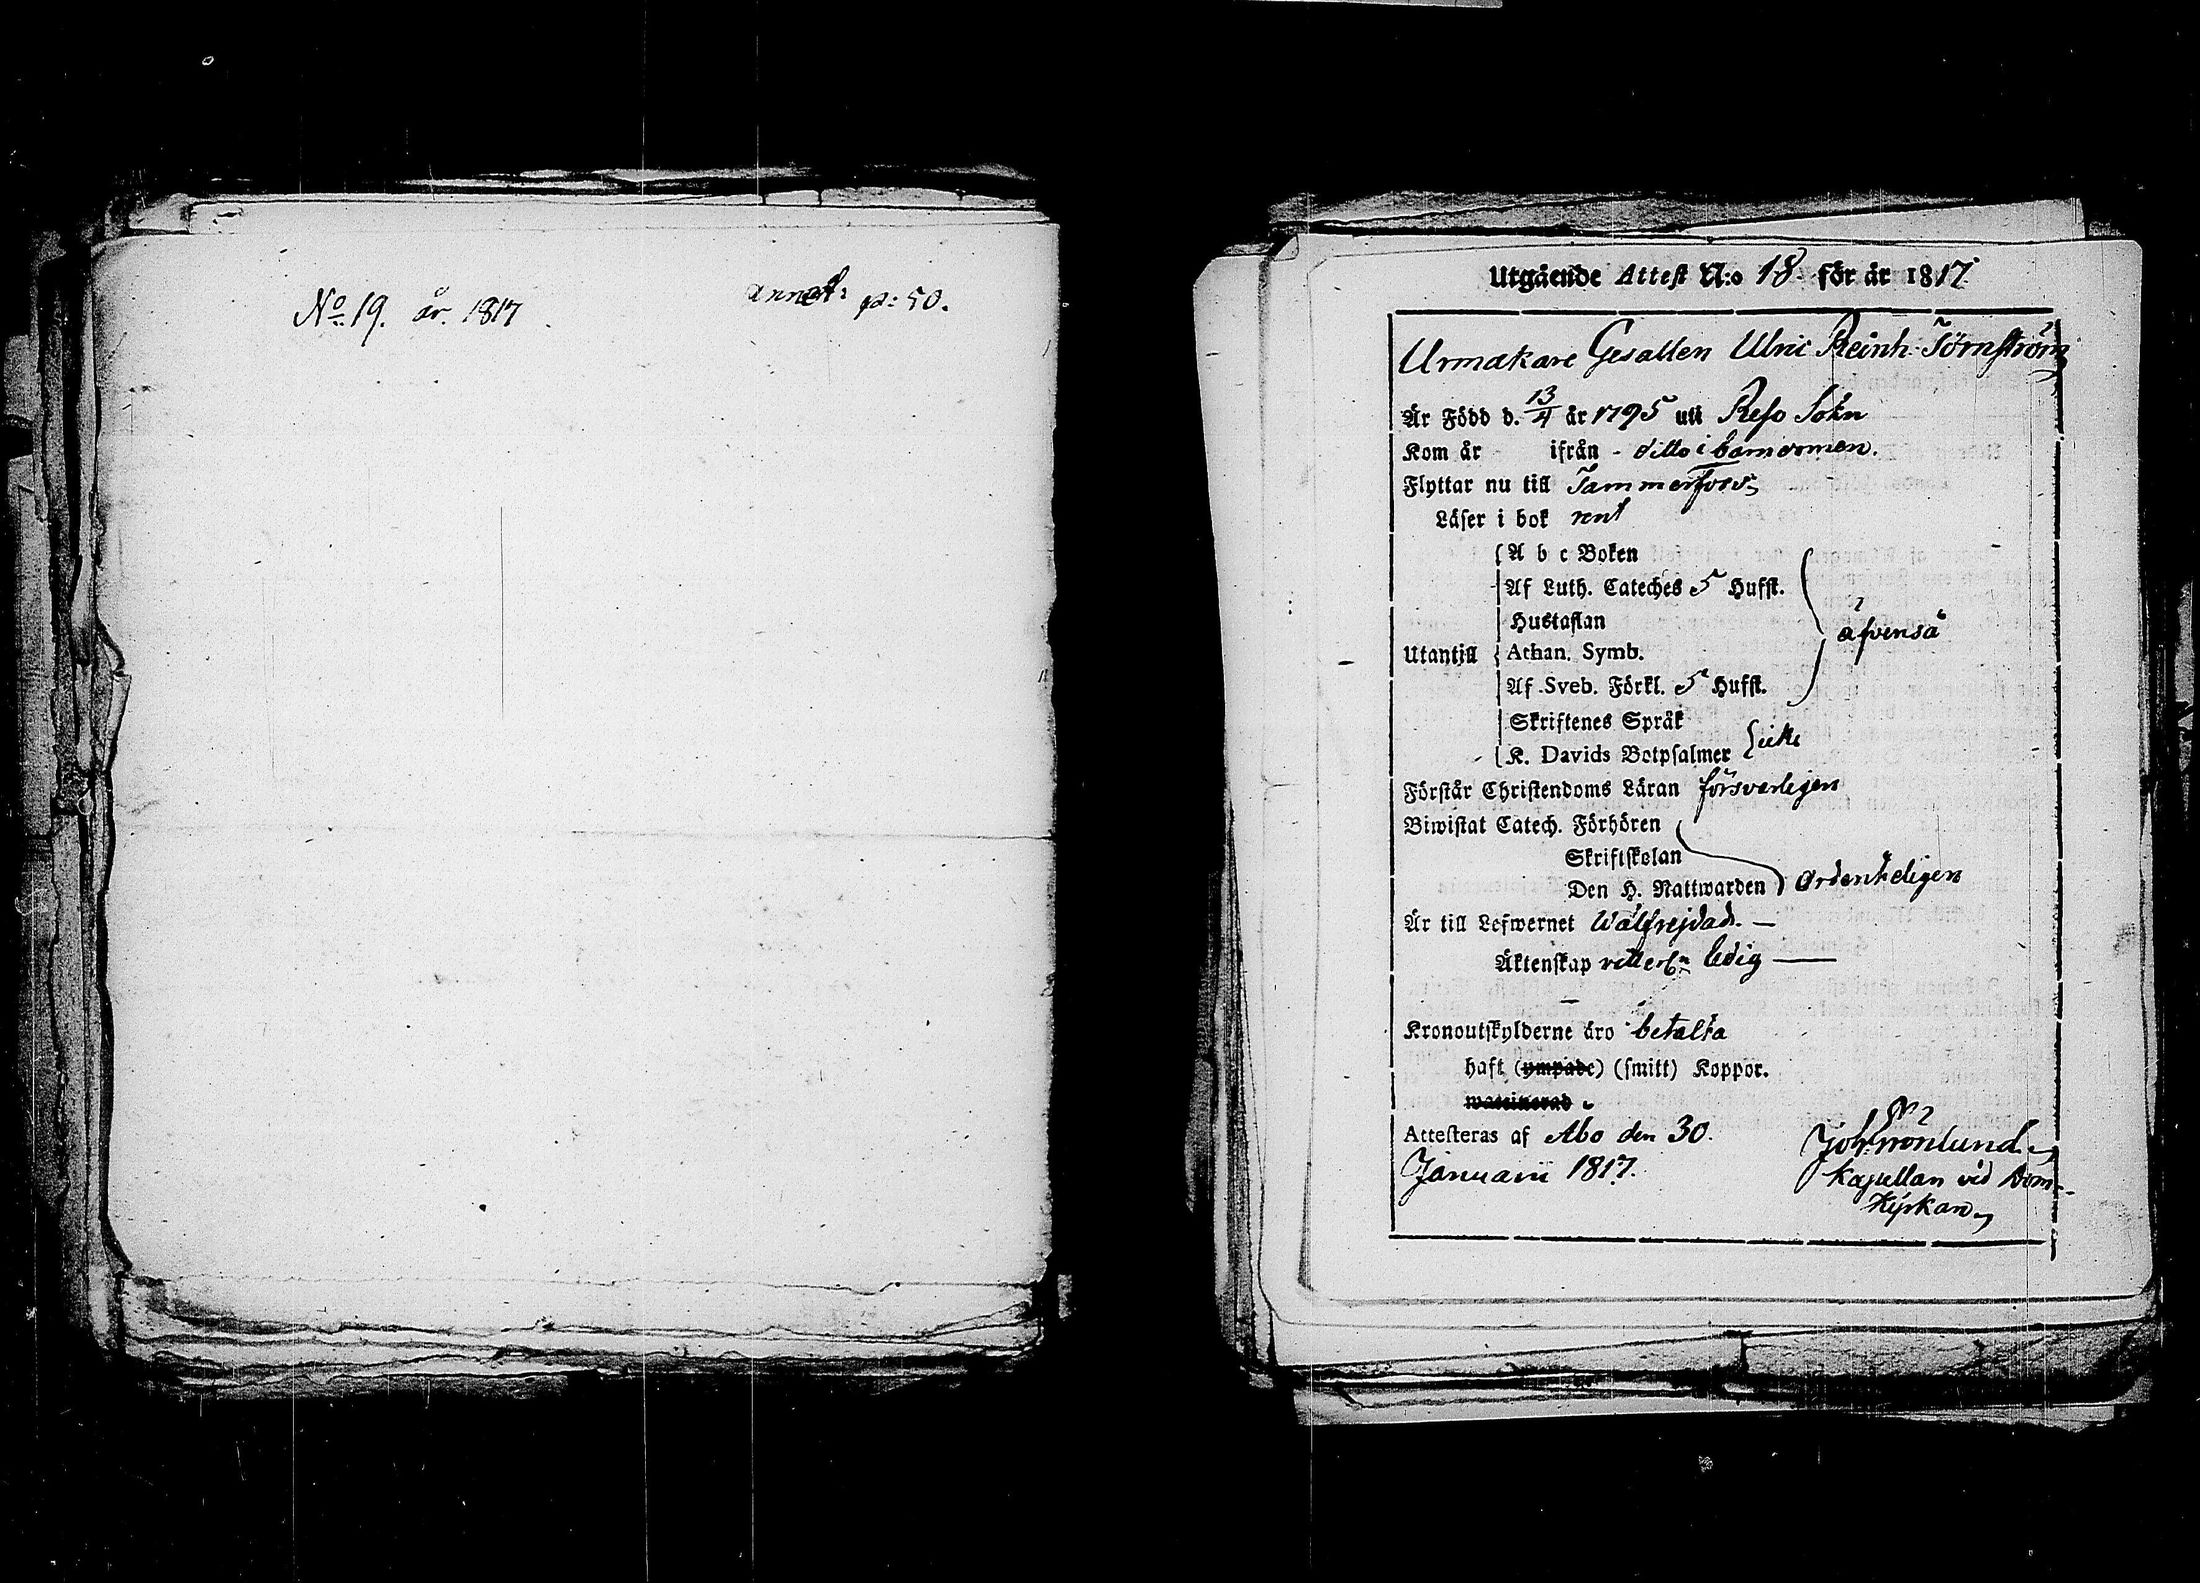 No 19. år. 1817
annot: p: 50.
Utgående Attest N:o 18 för år 1817.
Urmakare Gesällen Ulric Reinh. Törnström
Är Född d. 13/4 år 1795 uti Reso Sokn
Kom år - ifrån - ditto i barndomen.
Flyttar nu till Tammerfors
Läser i bok rent
A b c Boken
Af Luth. Cateches 5 Hufst.
Hustaflan
äfvenså
Utantill Athan. Symb.
Af Sveb. Förkl. 5 Hufst.
Skriftenes Språk
K. Davids Botpsalmer icke
Förstår Christendoms Läran försvarligen
Biwistat Catech. Förhören
Skriftskolan
Den H. Nattwarden ordenteligen
Är till Lefwernet Wälfrejdad. —
Äktenskap ledig —
Kronoutskylderne äro betalta
haft (ympade) (smitt) Koppor.
waccinerad
Attesteras af Åbo den 30.
Januarii 1817.
Joh. Grönlund
Kapellan vid Dom-
Kyrkan